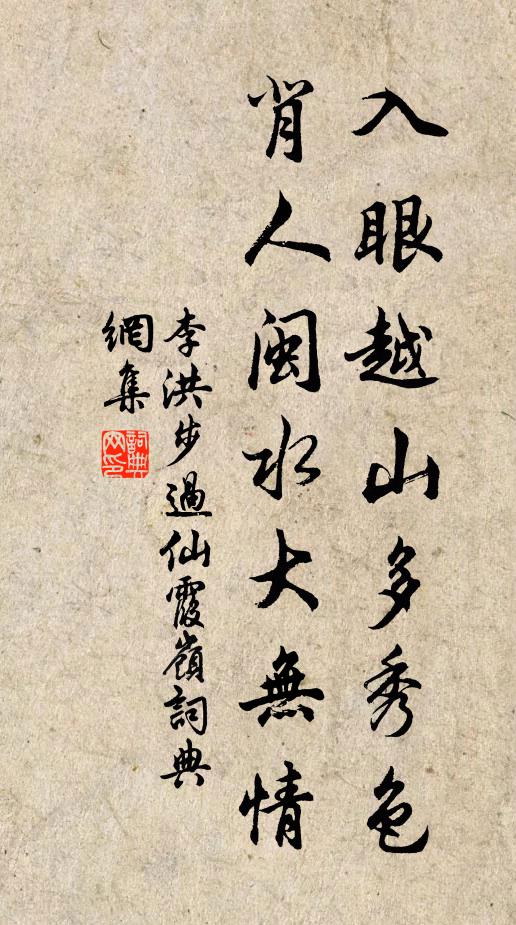 入眼越山多秀色
背人閩水大無情
李洪步過仙霞嶺詞典
網集
詞典網印